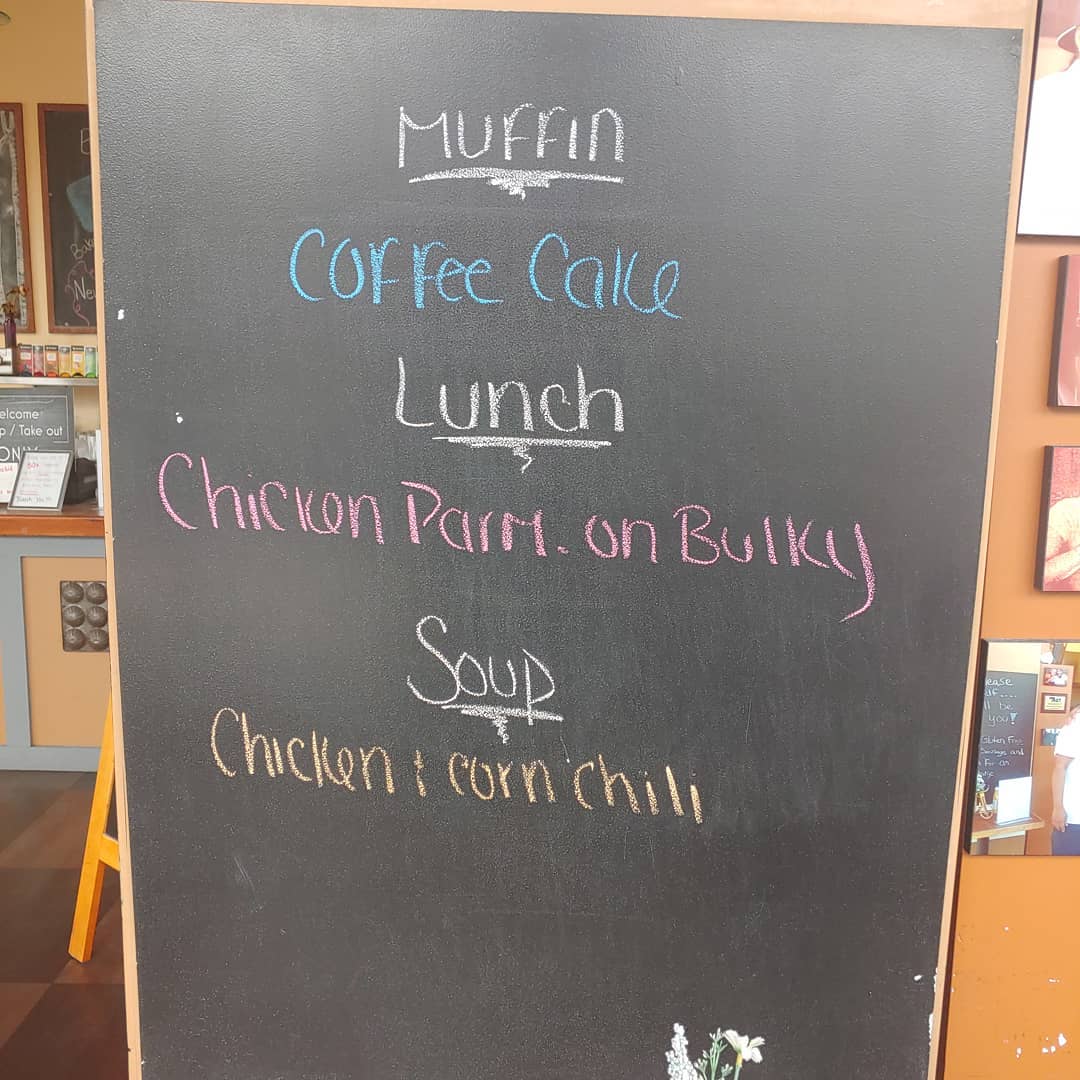 Muffin
Coffee Cake
Lunch
Chicken Parm. on Bulky
Soup
Chicken & corn chili
elcome
p / Take out
ONLY
ease
lf....
ll be
you!
Gluten Free
Sausage and
For an